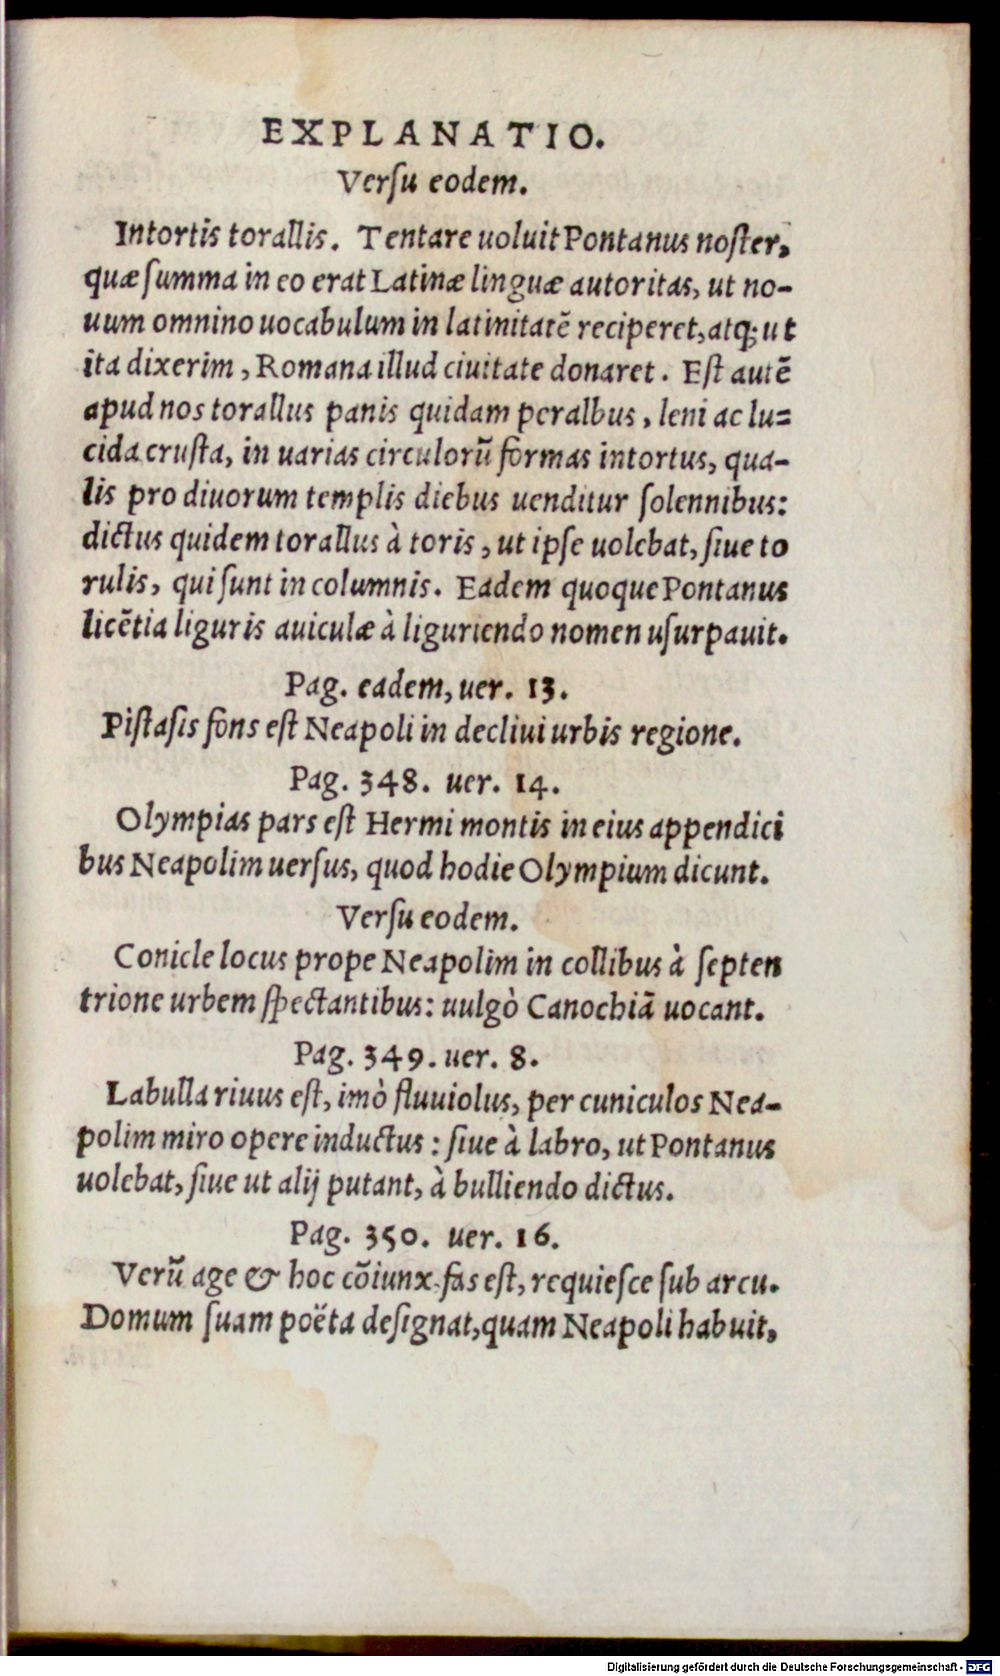 EXPLANATIO.
Verſu eodem.
Intortis torallis. Tentare uoluit Pontanus noſter,
quæ ſumma in eo erat Latinæ linguæ autoritas, ut no-
uum omnino uocabulum in latinitatē reciperet, atq; ut
ita dixerim, Romana illud ciuitate donaret. Eſt autē
apud nos torallus panis quidam peralbus, leni ac lu=
cida cruſta, in uarias circulorū formas intortus, qua-
lis pro diuorum templis diebus uenditur ſolennibus:
dictus quidem torallus à toris, ut ipſe uolebat, ſiue to
rulis, qui ſunt in columnis. Eadem quoque Pontanus
licētia liguris auiculæ à liguriendo nomen uſurpauit.
Pag. eadem, uer. 13.
Piſtaſis fons eſt Neapoli in decliui urbis regione.
Pag. 348. uer. 14.
Olympias pars eſt Hermi montis in eius appendici
bus Neapolim uerſus, quod hodie Olympium dicunt.
Verſu eodem.
Conicle locus prope Neapolim in collibus à ſepten
trione urbem ſpectantibus: uulgò Canochiā uocant.
Pag. 349. uer. 8.
Labulla riuus eſt, imò fluuiolus, per cuniculos Nea-
polim miro opere inductus: ſiue à labro, ut Pontanus
uolebat, ſiue ut alij putant, à bulliendo dictus.
Pag. 350. uer. 16.
Verū age & hoc cōiunx fas eſt, requieſce ſub arcu.
Domum ſuam poëta deſignat, quam Neapoli habuit,
Digitalisierung gefördert durch die Deutsche Forschungsgemeinschaft - DFG